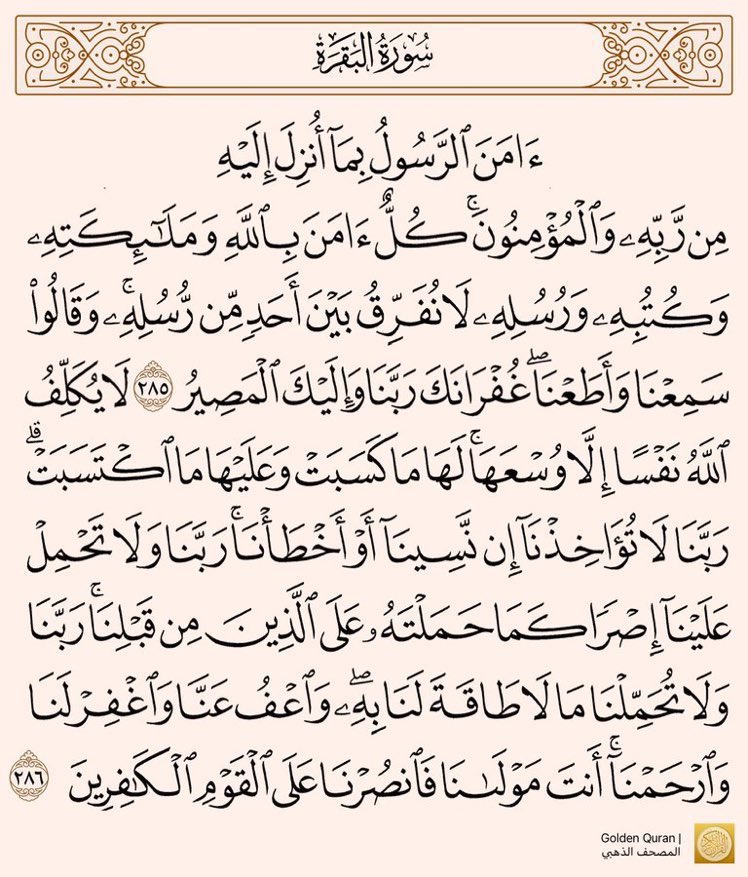 سُورَةُ البَقَرَةِ
ءَامَنَ ٱلرَّسُولُ بِمَآ أُنزِلَ إِلَيْهِ
مِن رَّبِّهِۦ وَٱلْمُؤْمِنُونَۚ كُلٌّ ءَامَنَ بِٱللَّهِ وَمَلَـٰٓئِكَتِهِۦ
وَكُتُبِهِۦ وَرُسُلِهِۦ لَا نُفَرِّقُ بَيْنَ أَحَدٍ مِّن رُّسُلِهِۦۚ وَقَالُوا۟
سَمِعْنَا وَأَطَعْنَاۖ غُفْرَانَكَ رَبَّنَا وَإِلَيْكَ ٱلْمَصِيرُ ٢٨٥ لَا يُكَلِّفُ
ٱللَّهُ نَفْسًا إِلَّا وُسْعَهَاۚ لَهَا مَا كَسَبَتْ وَعَلَيْهَا مَا ٱكْتَسَبَتْۗ
رَبَّنَا لَا تُؤَاخِذْنَآ إِن نَّسِينَآ أَوْ أَخْطَأْنَاۚ رَبَّنَا وَلَا تَحْمِلْ
عَلَيْنَآ إِصْرًا كَمَا حَمَلْتَهُۥ عَلَى ٱلَّذِينَ مِن قَبْلِنَاۚ رَبَّنَا
وَلَا تُحَمِّلْنَا مَا لَا طَاقَةَ لَنَا بِهِۦۖ وَٱعْفُ عَنَّا وَٱغْفِرْ لَنَا
وَٱرْحَمْنَآۚ أَنتَ مَوْلَىٰنَا فَٱنصُرْنَا عَلَى ٱلْقَوْمِ ٱلْكَـٰفِرِينَ ٢٨٦
Golden Quran |
المصحف الذهبي